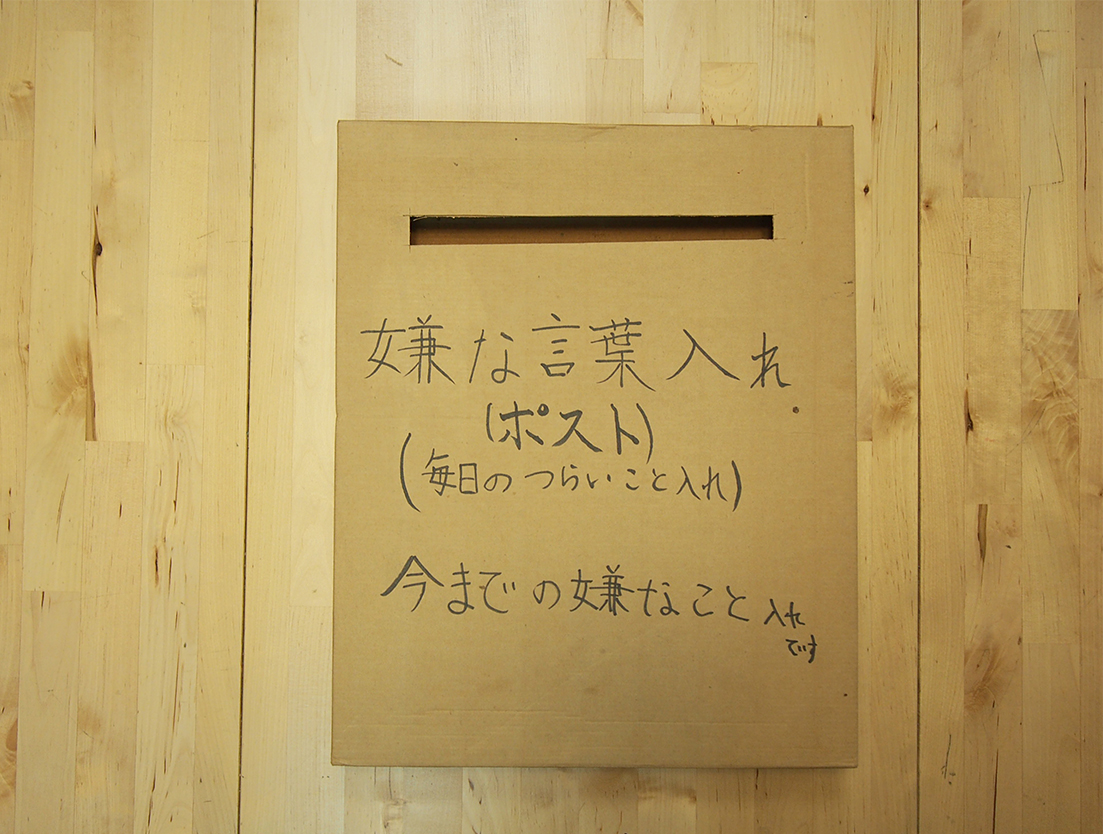 嫌な言葉入れ
(ポスト)
(毎日のつらいこと入れ)
今までの嫌なこと入れ
です